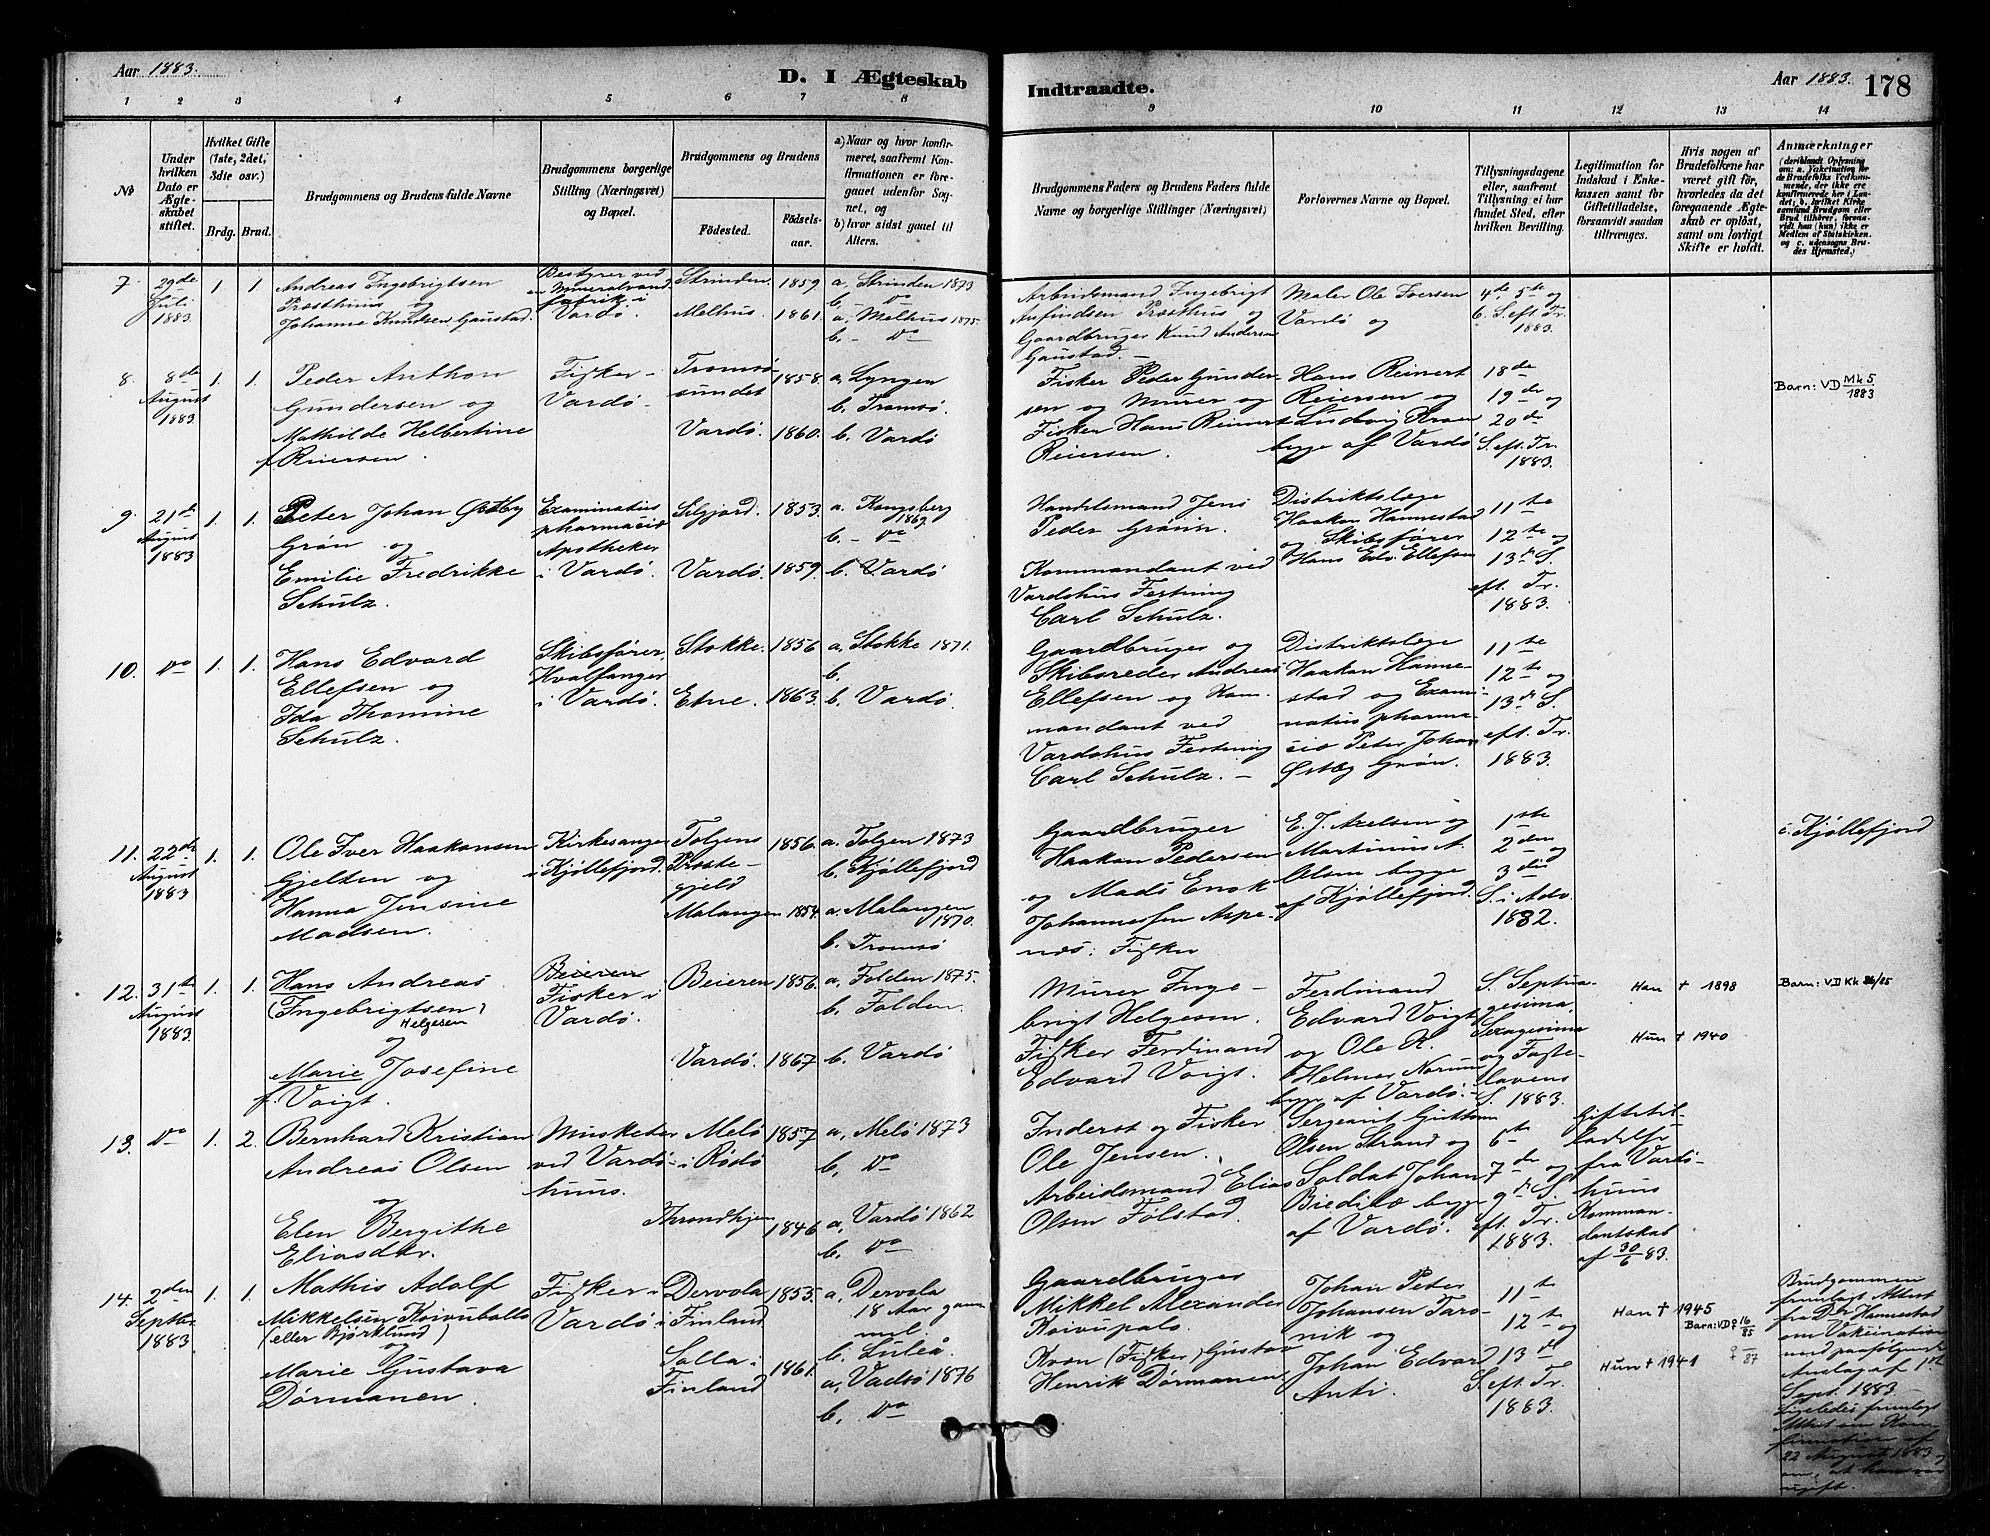 Aar 1883.
D. I Ægteskab
Indtraadte.
Aar 1883.
178
1 2 3 4 5 6 7 8
9 10 11 12 13 14
No
Under hvilken Dato er Ægteskabet stiftet.
Hvilket Gifte (1ste, 2det, 3die osv.)
Brdg. Brud.
Brudgommens og Brudens fulde Navne
Brudgommens borgerlige Stilling (Næringsvei) og Bopæl.
Brudgommens og Brudens
Fødested.
Fødselsaar.
a) Naar og hvor konfirmeret, saafremt Konfirmationen er foregaaet udenfor Sognet, og
b) hvor sidst gaaet til Alters.
Brudgommens Faders og Brudens Faders fulde Navne og borgerlige Stillinger (Næringsvei)
Forlovernes Navne og Bopæl.
Tillysningsdagene eller, saafremt Tillysning ei har fundet Sted, efter hvilken Bevilling.
Legitimation for Indskud i Enkekassen samt for Giftetilladelse, forsaavidt saadan tiltrænges.
Hvis nogen af Brudefolkene har været gift før, hvorledes da det foregaaende Ægteskab er opløst, samt om lovligt Skifte er holdt.
Anmærkninger
7. 29de Juli 1883
1 1
Andreas Ingebrigtsen
Præsthuus og
Johanne Knudsen Gaustad.
Bestyrer ved
en Mineralvand
fabrik i
Vardø.
Strinden 1859
Melhus. 1861.
a, Strinden 1873
b. - Do
a, Melhus 1875.
b. - Do
Arbeidsmand Ingebrigt
Arfindsen Præsthus og
Gaardbruger Knud Andersen
Gaustad.
Maler Ole Iversen
Vardø og
4de, 5te og
6. S. eft. Tr.
1883.
8. 8de August 1883
1. 1.
Peder Anthon
Gundersen og
Mathilde Helbertine
f. Reiersen.
Fisker
Vardø.
Tromsø
sundet 1858.
Vardø. 1860.
a, Lyngen
b. Tromsø.
b. Vardø
Fisker Peder Gunder-
sen og Murer og
Fisker Hans Reinert
Reiersen.
Hans Reinert
Reiersen og
Ludvig Kraa
begge af Vardø
18de
19de og
20de
S. eft. Tr.
1883.
Barn: VD Mk 5
1883
9. 21de August 1883
1. 1.
Peter Johan Østby
Grøn og
Emilie Fredrikke
Schulz.
Examinatus
pharmacie
Apotheker
i Vardø.
Seljord. 1853.
Vardø. 1859.
a. Kongsberg
1869
b. - Do
b. Vardø
Handelsmand Jens
Peder Grønn.
Kommandant ved
Vardøhus Festning
Carl Schulz.
Distriktslæge
Haakon Hannestad
og Skibsfører
Hans Edv. Ellefsen
11te
12te og
13de S.
eft. Tr.
1883.
10. Do
1. 1.
Hans Edvard
Ellefsen og
Ida Thomine
Schulz.
Skibsfører,
Hvalfanger
i Vardø.
Stokke. 1856
Etne. 1863.
a, Stokke 1871.
b.
b. Vardø.
Gaardbruger og
Skibsreder Andreas
Ellefsen og Kom-
mandant ved
Vardøhus Festning
Carl Schulz. -
Distriktslæge
Haakon Hanne-
stad og Exami-
natus pharma-
cie Peter Johan
Østby Grøn.
11te
12te og
13de S.
eft. Tr.
1883.
11. 22de August 1883
1. 1.
Ole Iver Haakonsen
Gjelten og
Hanna Jensine
Madsen.
Kirkesanger
i Kjøllefjord.
Tolgens
Præste-
gjeld 1856.
Malangen 1854.
a. Tolgen 1873
b. Kjøllefjord
a. Malangen
1870.
b. Tromsø
Gaardbruger
Haakon Pedersen
og Mads Enok
Johannessen Aspe-
næs: Fisker
E. J. Axelsen og
Martinus A.
Olsen begge
af Kjøllefjord.
1ste
2den og
3die
S. i Adv.
1882.
i Kjøllefjord
12. 31te August 1883
1. 1
Hans Andreas
(Ingebrigtsen)
Helgesen
og
Marie Josefine
f. Voigt.
Beieren
Fisker i
Vardø.
Beieren 1856.
Vardø. 1867.
a, Folden 1875.
b. Folden.
b. Vardø
Murer Inge-
brigt Helgesen.
Fisker Ferdinand
Edvard Voigt.
Ferdinand
Edvard Voigt
og Ole K.
Helmer Norum
begge af Vardø.
S. Septua-
gesima,
Sexagesima
og Faste-
lavens
S. 1883.
Han † 1898
Hun † 1940
Barn: VD Kk 36/85
13. Do
1. 2.
Bernhard Kristian
Andreas Olsen
og
Elen Bergithe
Eliasdtr.
Musketer
ved Vardø-
huus.
Melø
i Rødø 1857
Throndhjem 1846
a, Melø 1873
b, Do
a, Vardø 1862
b. Do
Inderst og Fisker
Ole Jensen.
Arbeidsmand Elias
Olsen Følstad.
Sergeant Guttorm
Olsen Strand og
Soldat Johan
Biedilæ begge
af Vardø.
6te
7de og
9de S.
eft. Tr.
1883.
Giftetil-
ladelse
fra Vardø-
huus
Komman-
dantskab
af 30/6 83.
14. 2den Septbr. 1883
1. 1.
Mathis Adolf
Mikkelsen Koivuballo
(eller Bjørklund)
og
Marie Gustava
Dørmanen.
Fisker i
Vardø
Dervola
i Finland 1853.
Salla i
Finland 1861.
a, Dervola
18 Aar gam-
mel.
b. Luleå
a, Vadsø 1876
b. Do
Gaardbruger
Mikkel Alexander
Koivupalo.
Kvæn (Fisker) Gustav
Henrik Dørmanen
Johan Peter
Johansen Taro-
nik og
Johan Edvard
Anti.
11te
12te og
13de
S. eft. Tr.
1883.
Han † 1945
Barn: VD 16/85
Hun † 1941
Brudgommen
fremlagt Attest
fra Dr Hannestad
om Vakcination
med paafølgende
Anslag af 1ste
Sept. 1883 -
Ligeledes fremlagt
Attest om Kon-
firmation af
22 August 1883
om, at han var
ugift.